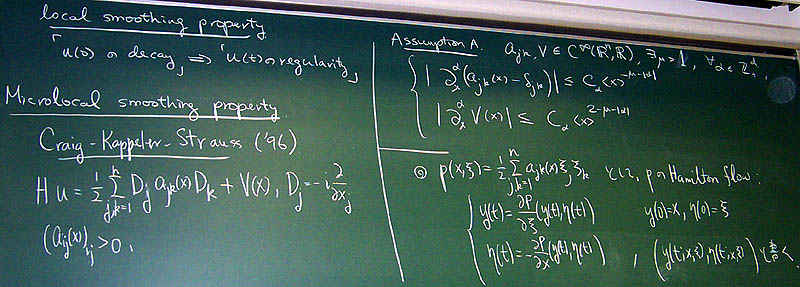 local smoothing property
「u(0) の decay」 ⇒ 「u(t) の regularity」
Microlocal smoothing property
Craig-Kappeler-Strauss ('96)
Hu = 1/2 ∑_{j,k=1}^n D_j a_{jk}(x) D_k + V(x), D_j = -i ∂/∂x_j
(a_{ij}(x))_{ij} > 0,
Assumption A. a_{jk}, V ∈ C^∞(ℝ^n, ℝ), ∃μ > 1, ∀α ∈ ℤ_+^d,
|∂_x^α (a_{jk}(x) - δ_{jk})| ≤ C_α <x>^{-μ-|α|}
|∂_x^α V(x)| ≤ C_α <x>^{2-μ-|α|}
◎ p(x,ξ) = 1/2 ∑_{j,k=1}^n a_{jk}(x) ξ_j ξ_k として, p の Hamilton flow:
y(t) = ∂p/∂ξ (y(t), η(t)) y(0) = x, η(0) = ξ
η(t) = -∂p/∂x (y(t), η(t)) , (y(t;x,ξ), η(t;x,ξ)) と書く